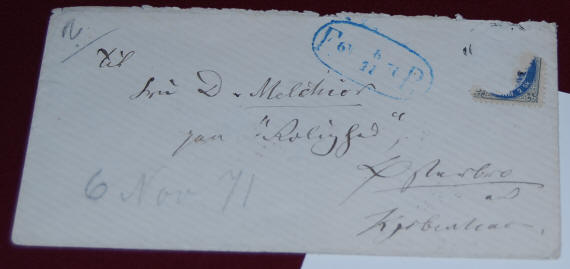 Til
Fru D. Melchior
paa "Rolighed",
Østerbro
ved
Kjøbenhavn.
6 Nov 71